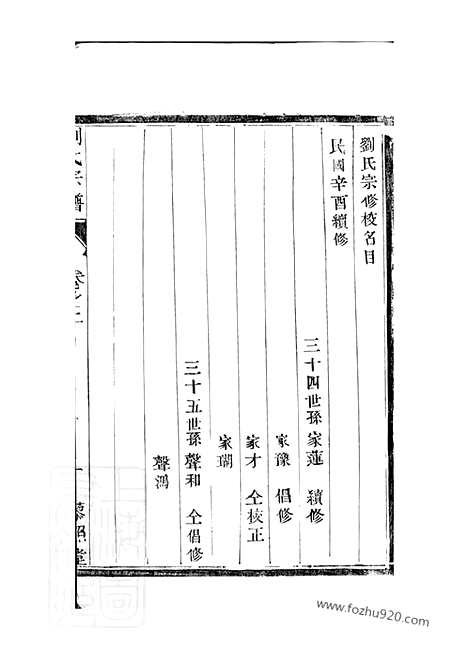 劉氏宗修校名目
民國辛酉續修
三十四世孫 家蓮 續修
家豫 倡修
家才 仝校正
家瑚
三十五世孫 聲和 仝倡修
聲鴻
劉氏宗譜
卷之二
www.fozhu920.com